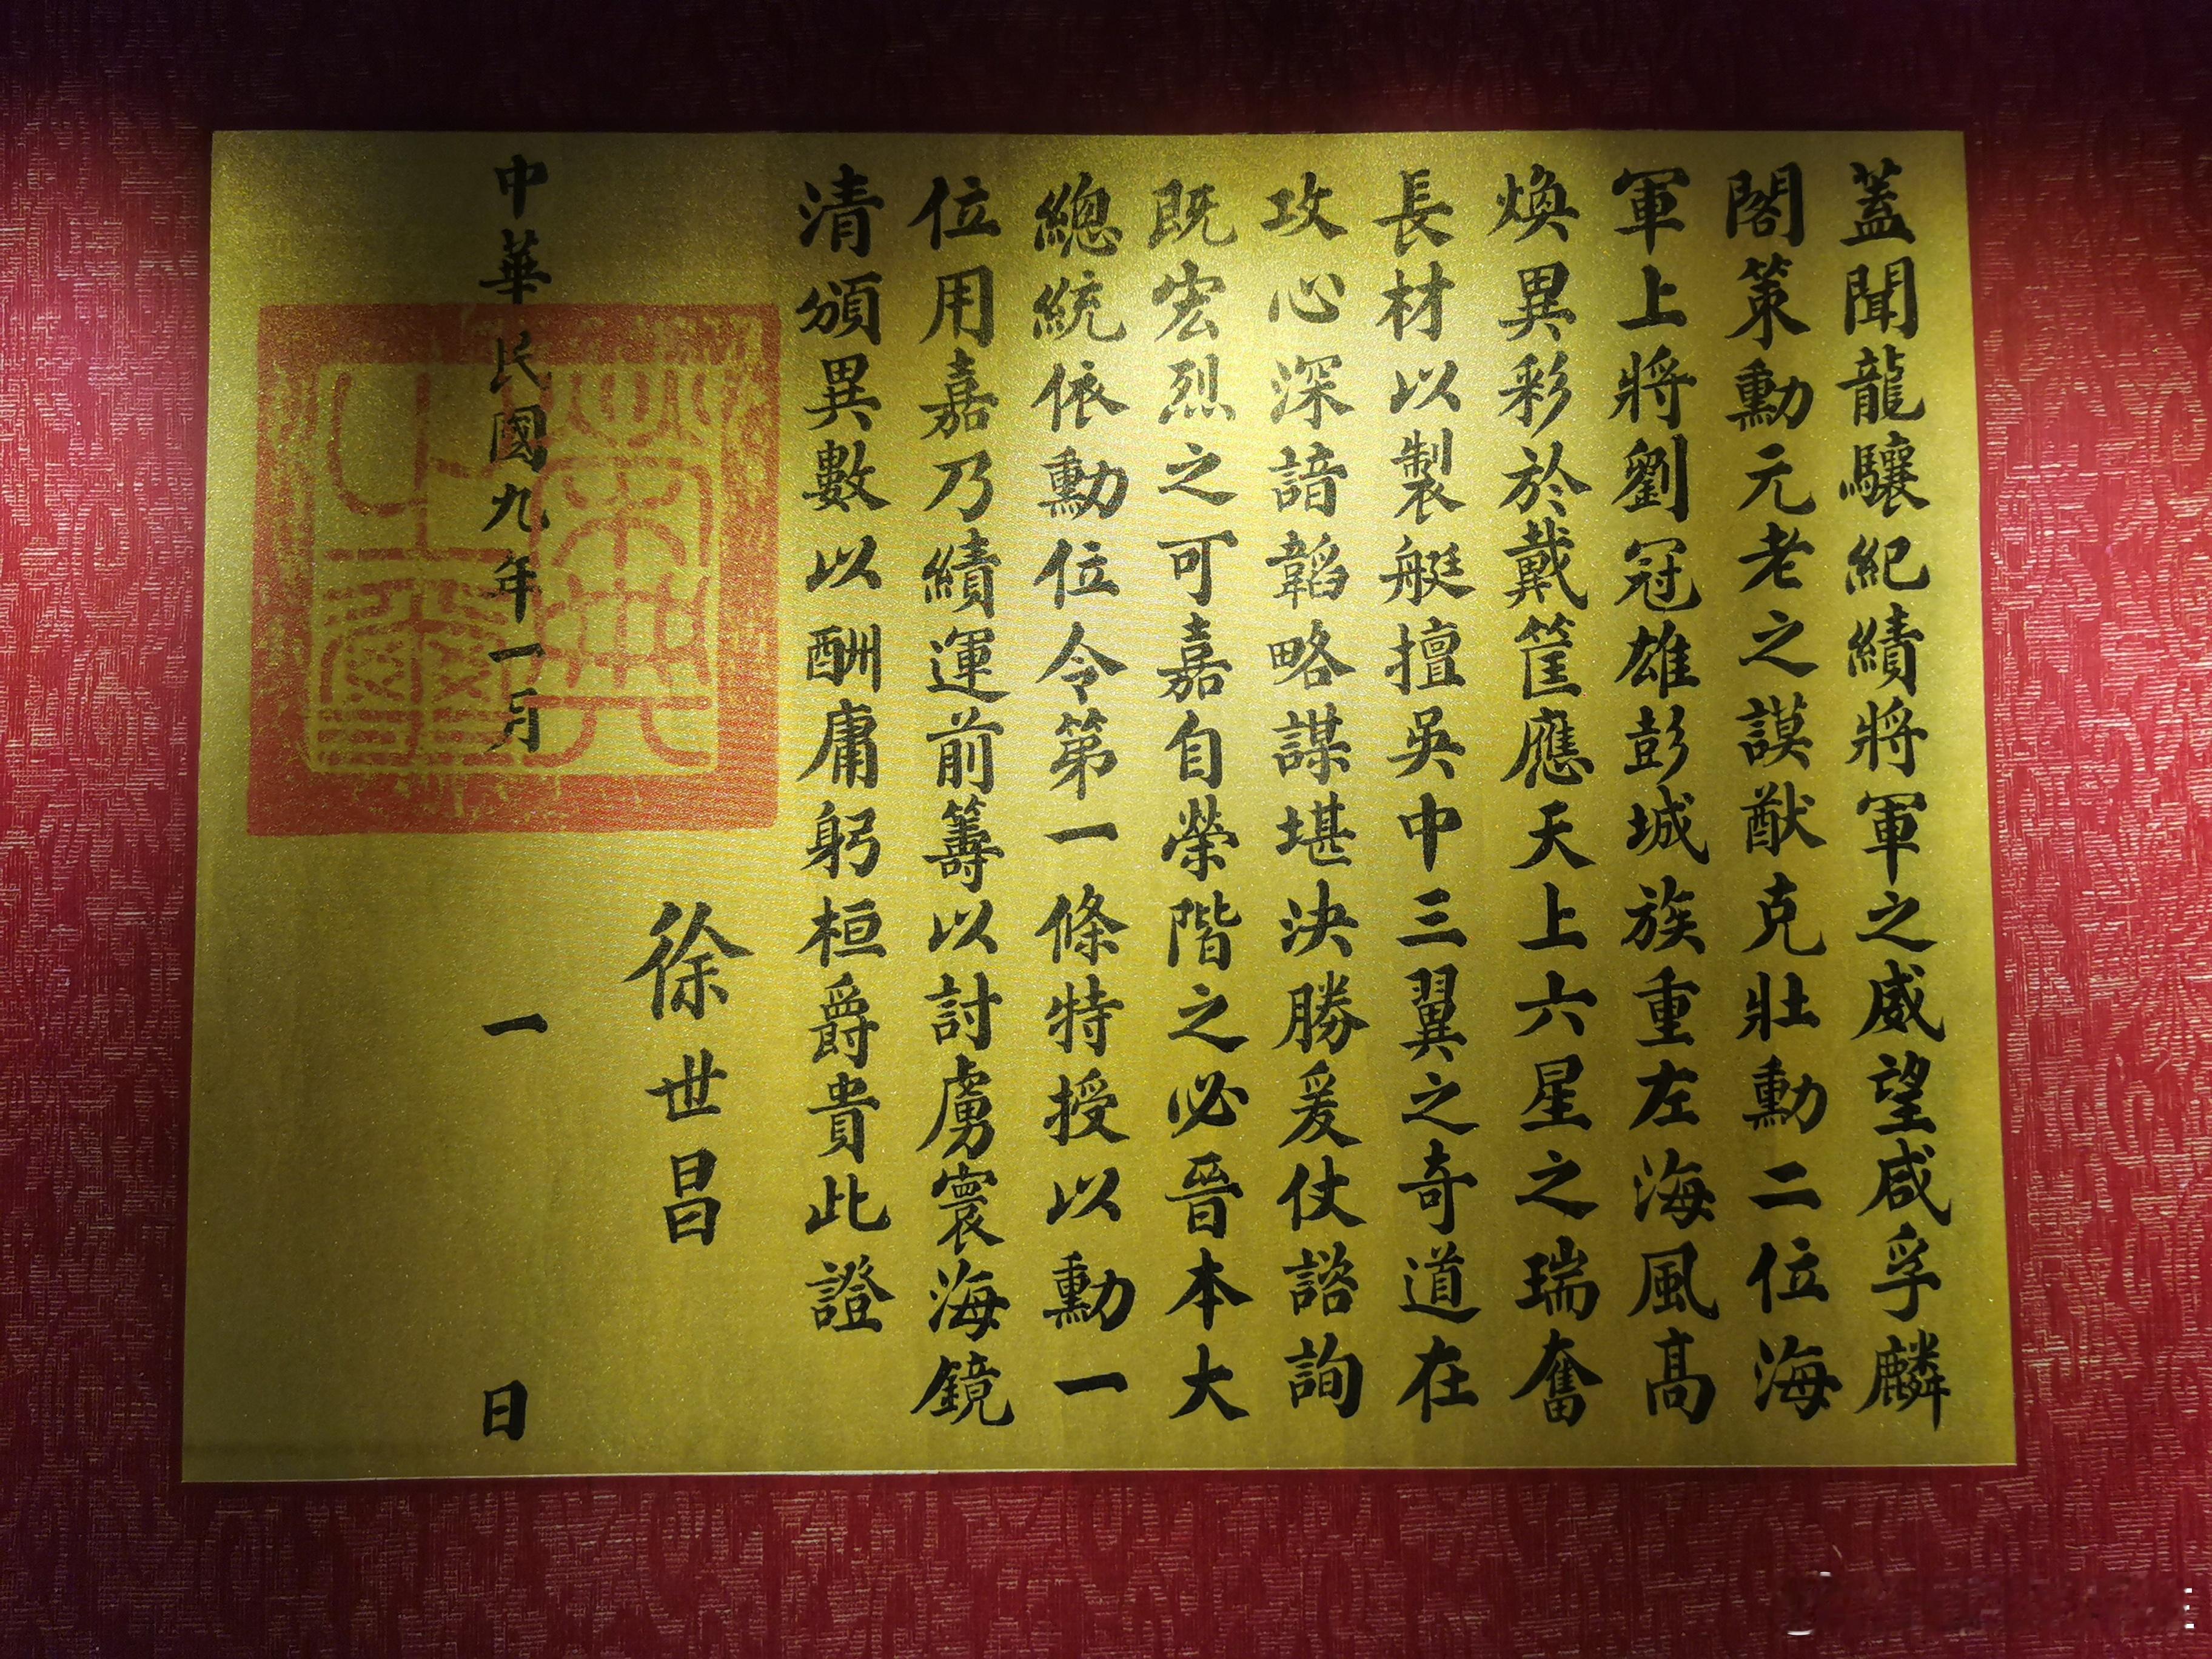 蓋聞龍驤紀績將軍之威望咸孚麟
閣策勳元老之謨猷克壯勳二位海
軍上將劉冠雄彭城族重左海風高
煥異彩於戴筐應天上六星之瑞奮
長材以製艇擅吳中三翼之奇道在
攻心深諳韜略謀堪決勝爰仗諮詢
既宏烈之可嘉自榮階之必晉本大
總統依勳位令第一條特授以勳一
位用嘉乃績運前籌以討虜寰海鏡
清頒異數以酬庸躬桓爵貴此證
徐世昌
中華民國九年一月一日
榮典之璽